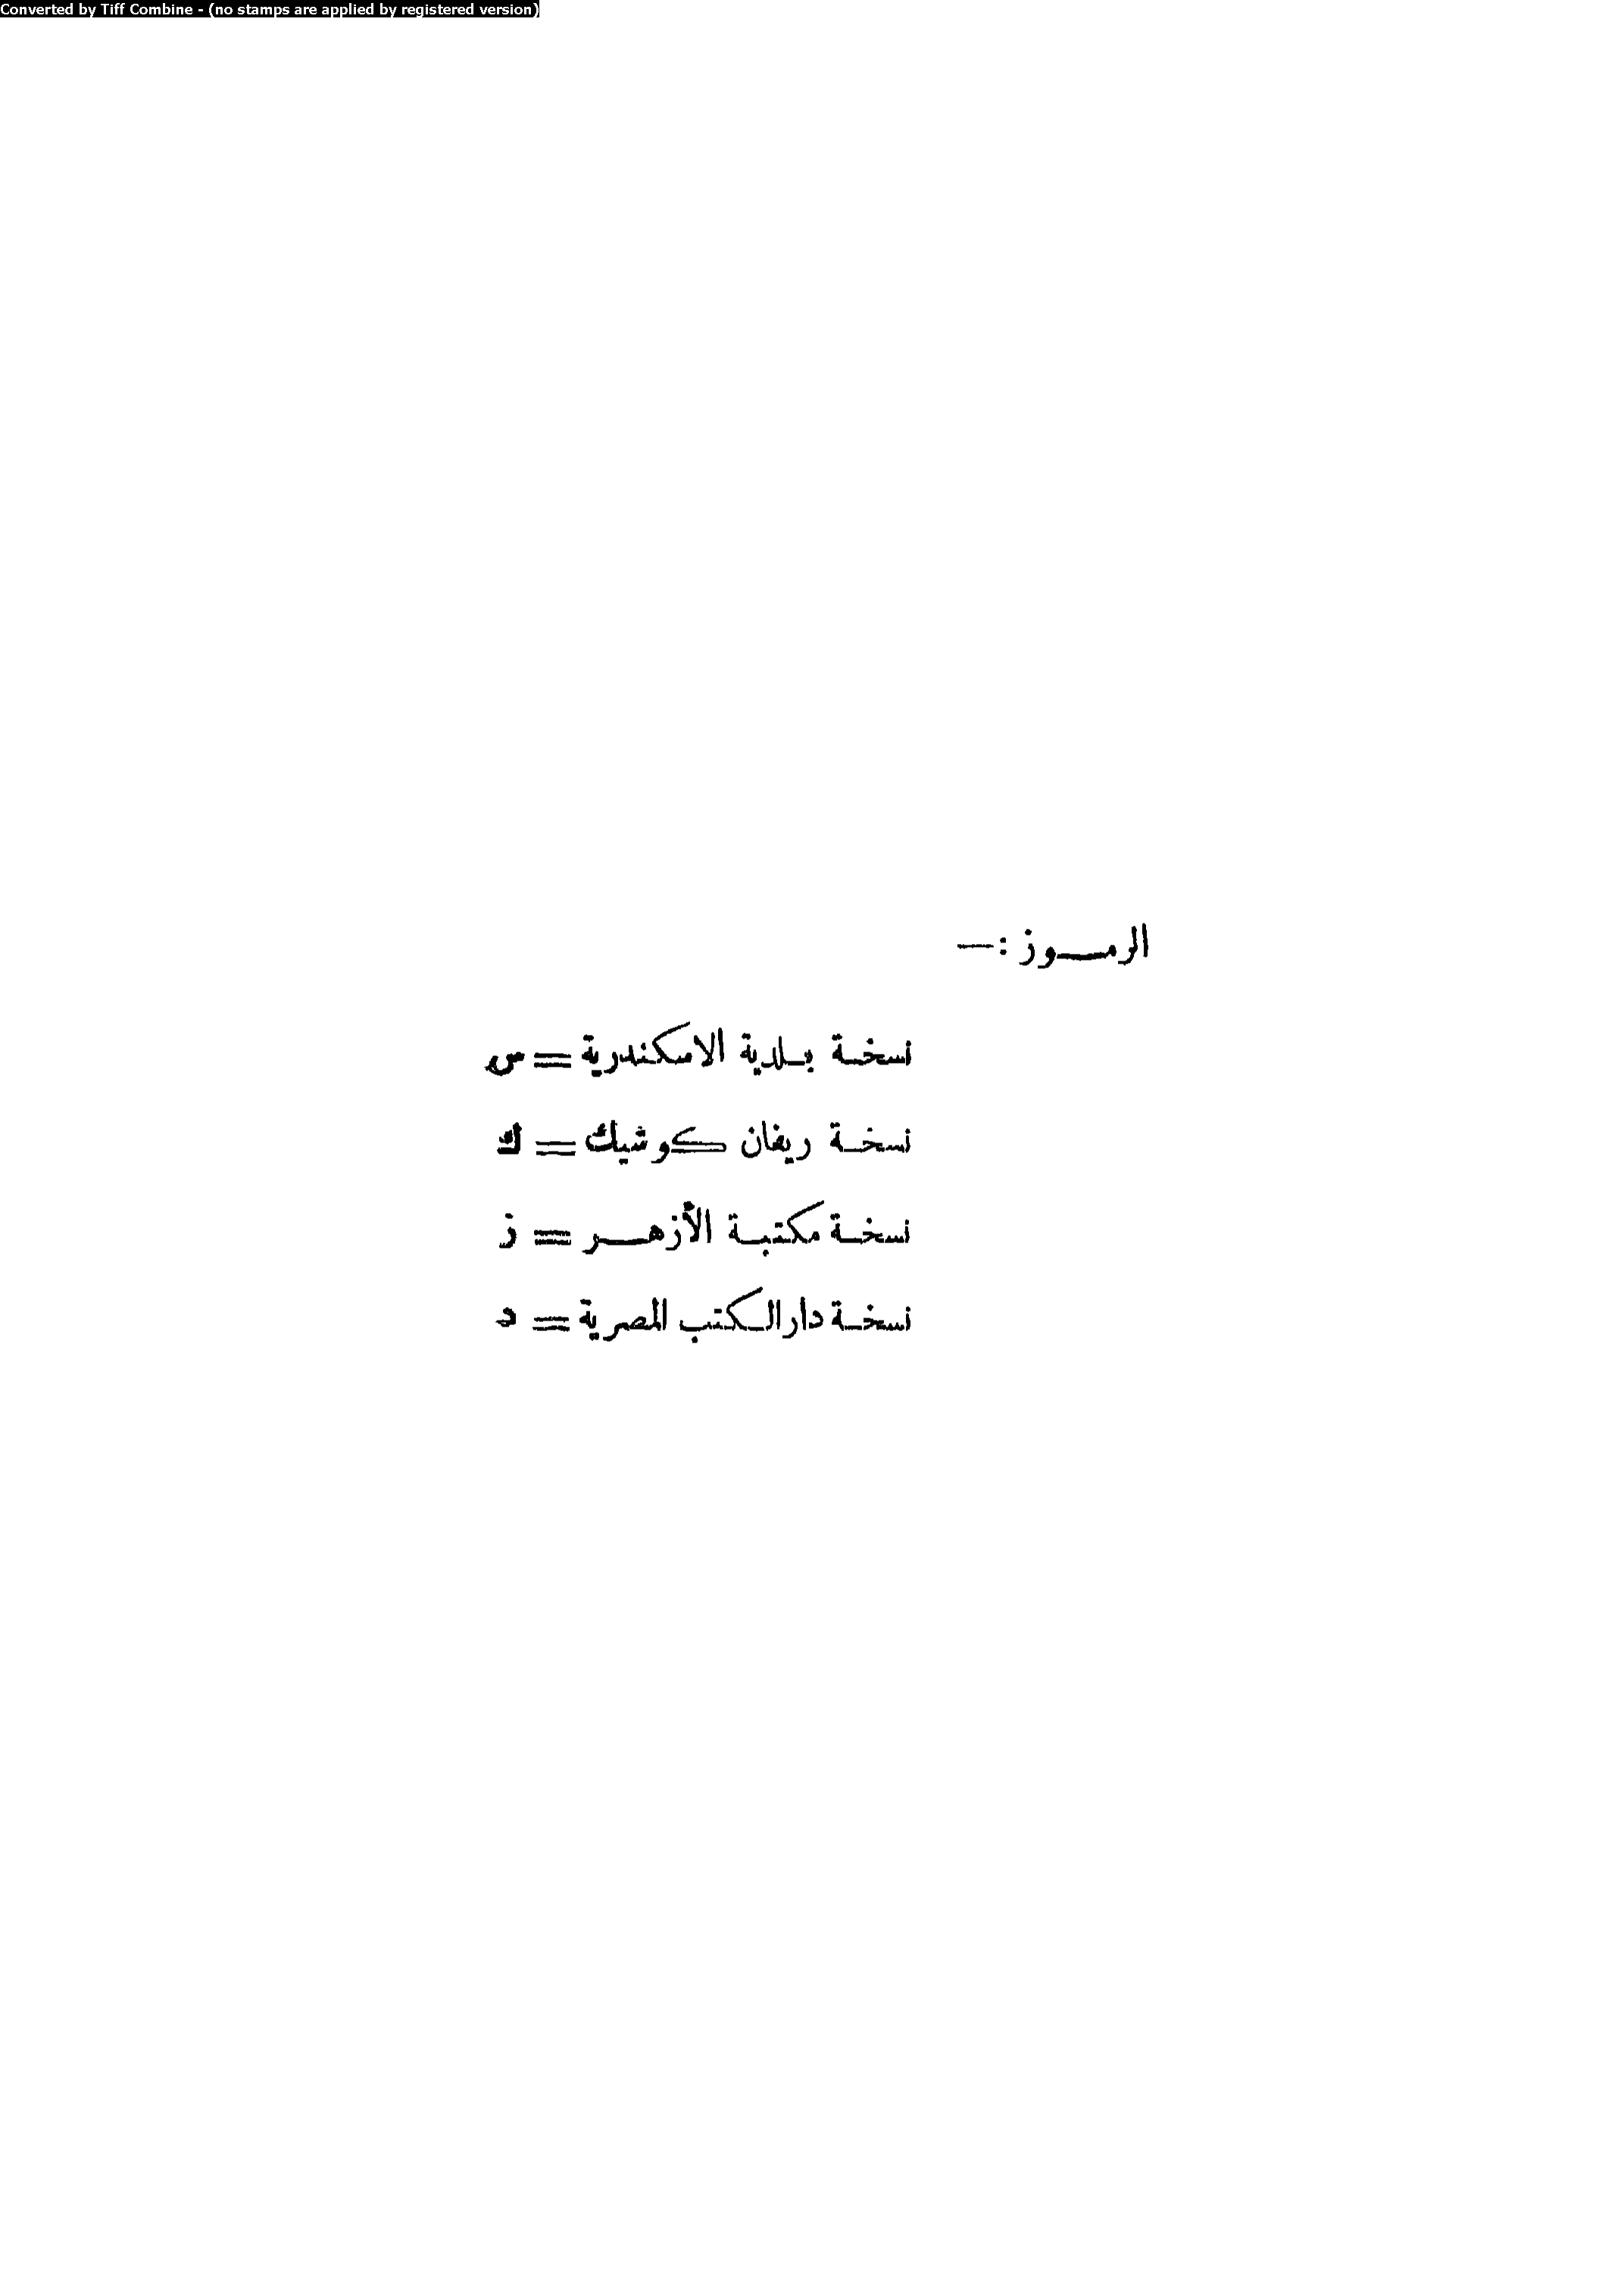 Converted by Tiff Combine - (no stamps are applied by registered version)
الرمـــوز :—
نسخـة بـلدية الاسكندرية = س
نسخـة ريفان كوشيك = ك
نسخـة مكتبـة الأزهـــر = ز
نسخـة دار الـكتب المصرية = د